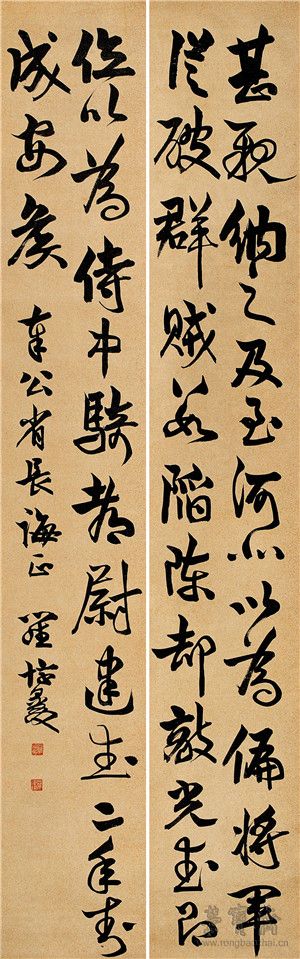 甚親納之及至河北以為偏將軍
從破群賊數陷陳却敵光武即
位以為侍中騎都尉建武二年封
成安侯
公省長誨正
榮寶齋
www.rongbaozhai.cn